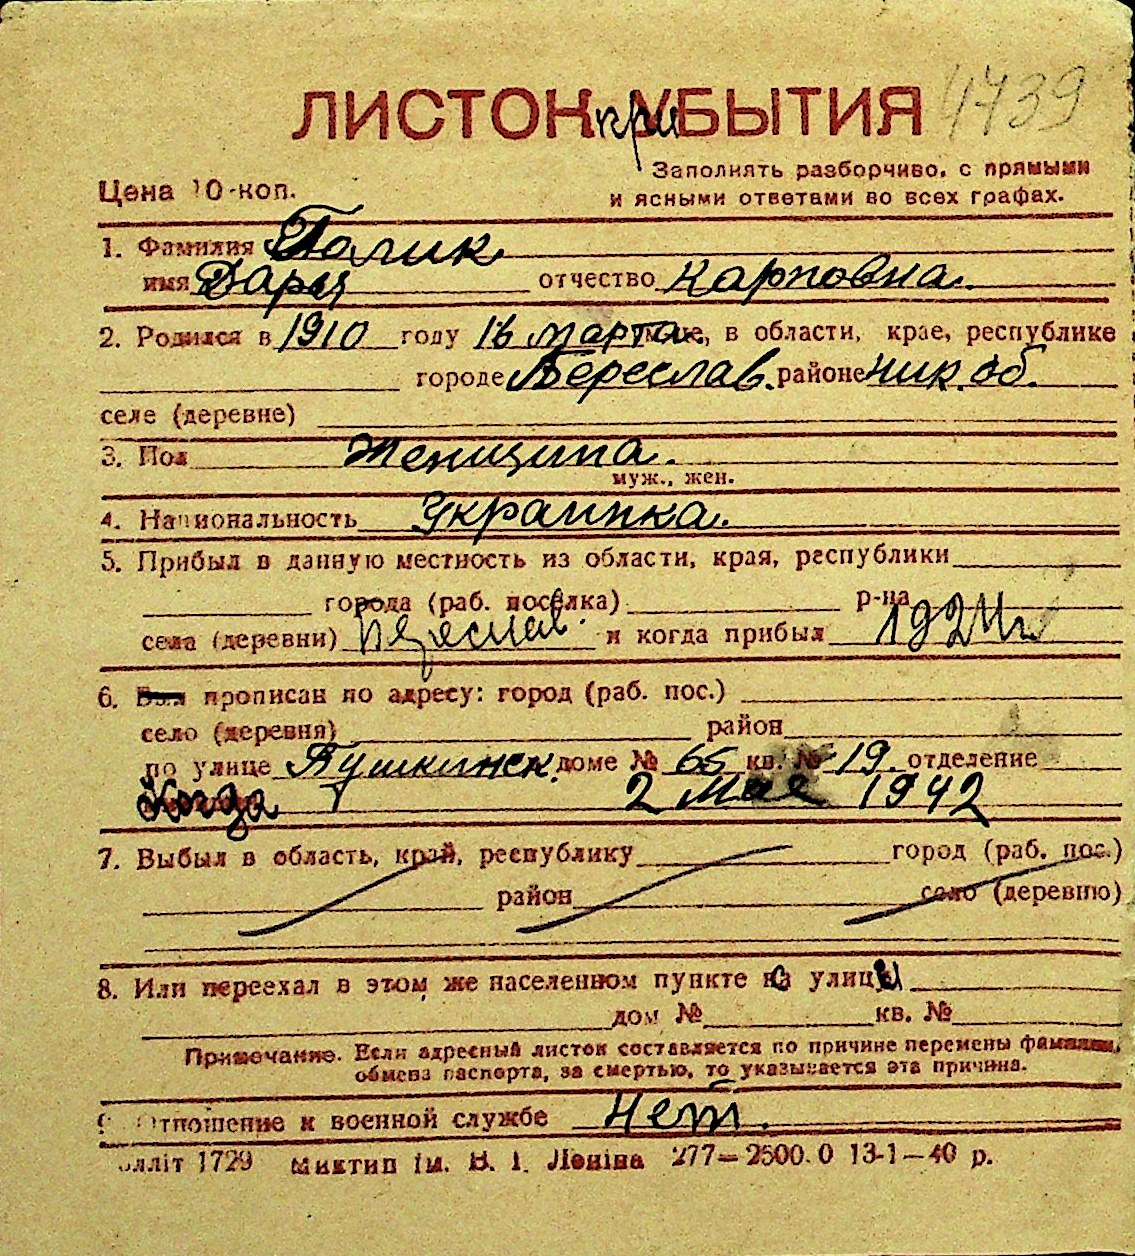 4739
ЛИСТОК приБЫТИЯ
Цена 10 коп.
Заполнять разборчиво, с прямыми
и ясными ответами во всех графах.
1. Фамилия Голик
имя Дарья отчество Карповна.
2. Родился в 1910 году 16 марта. в области, крае, республике
городе Береслав. районе Ник. об.
селе (деревне)
3. Пол Женщина.
муж., жен.
4. Национальность Украинка.
5. Прибыл в данную местность из области, края, республики
города (раб. посёлка) р-на
села (деревни) и когда прибыл 1924
6. Был прописан по адресу: город (раб. пос.)
село (деревня) район
по улице Пушкинск. доме № 65 кв. № 19. отделение
Когда 2 Мае 1942
7. Выбыл в область, край, республику город (раб. пос.)
район село (деревню)
8. Или переехал в этом же населенном пункте с улицы
дом № кв. №
Примечание. Если адресный листок составляется по причине перемены фамилии,
обмена паспорта, за смертью, то указывается эта причина.
9. Отношение к военной службе Нет.
1729 Миктип ім. В. І. Леніна 277—2500.0 13-1—40 р.